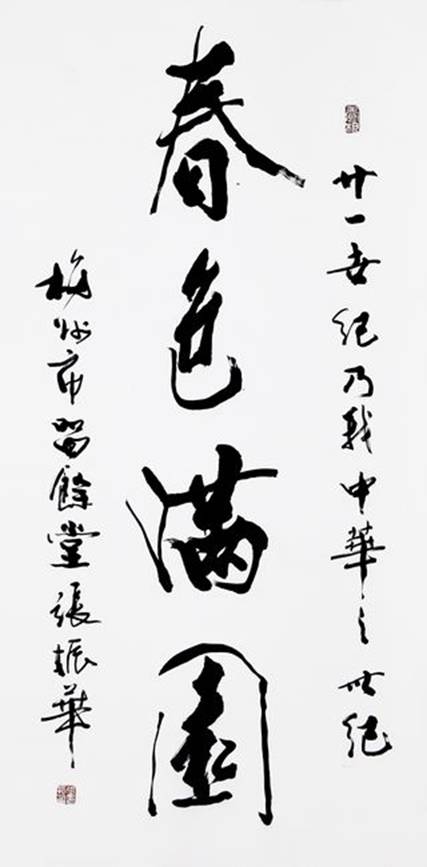 廿一世紀乃我中華之世紀
春色满園
梅州市留餘堂張振華